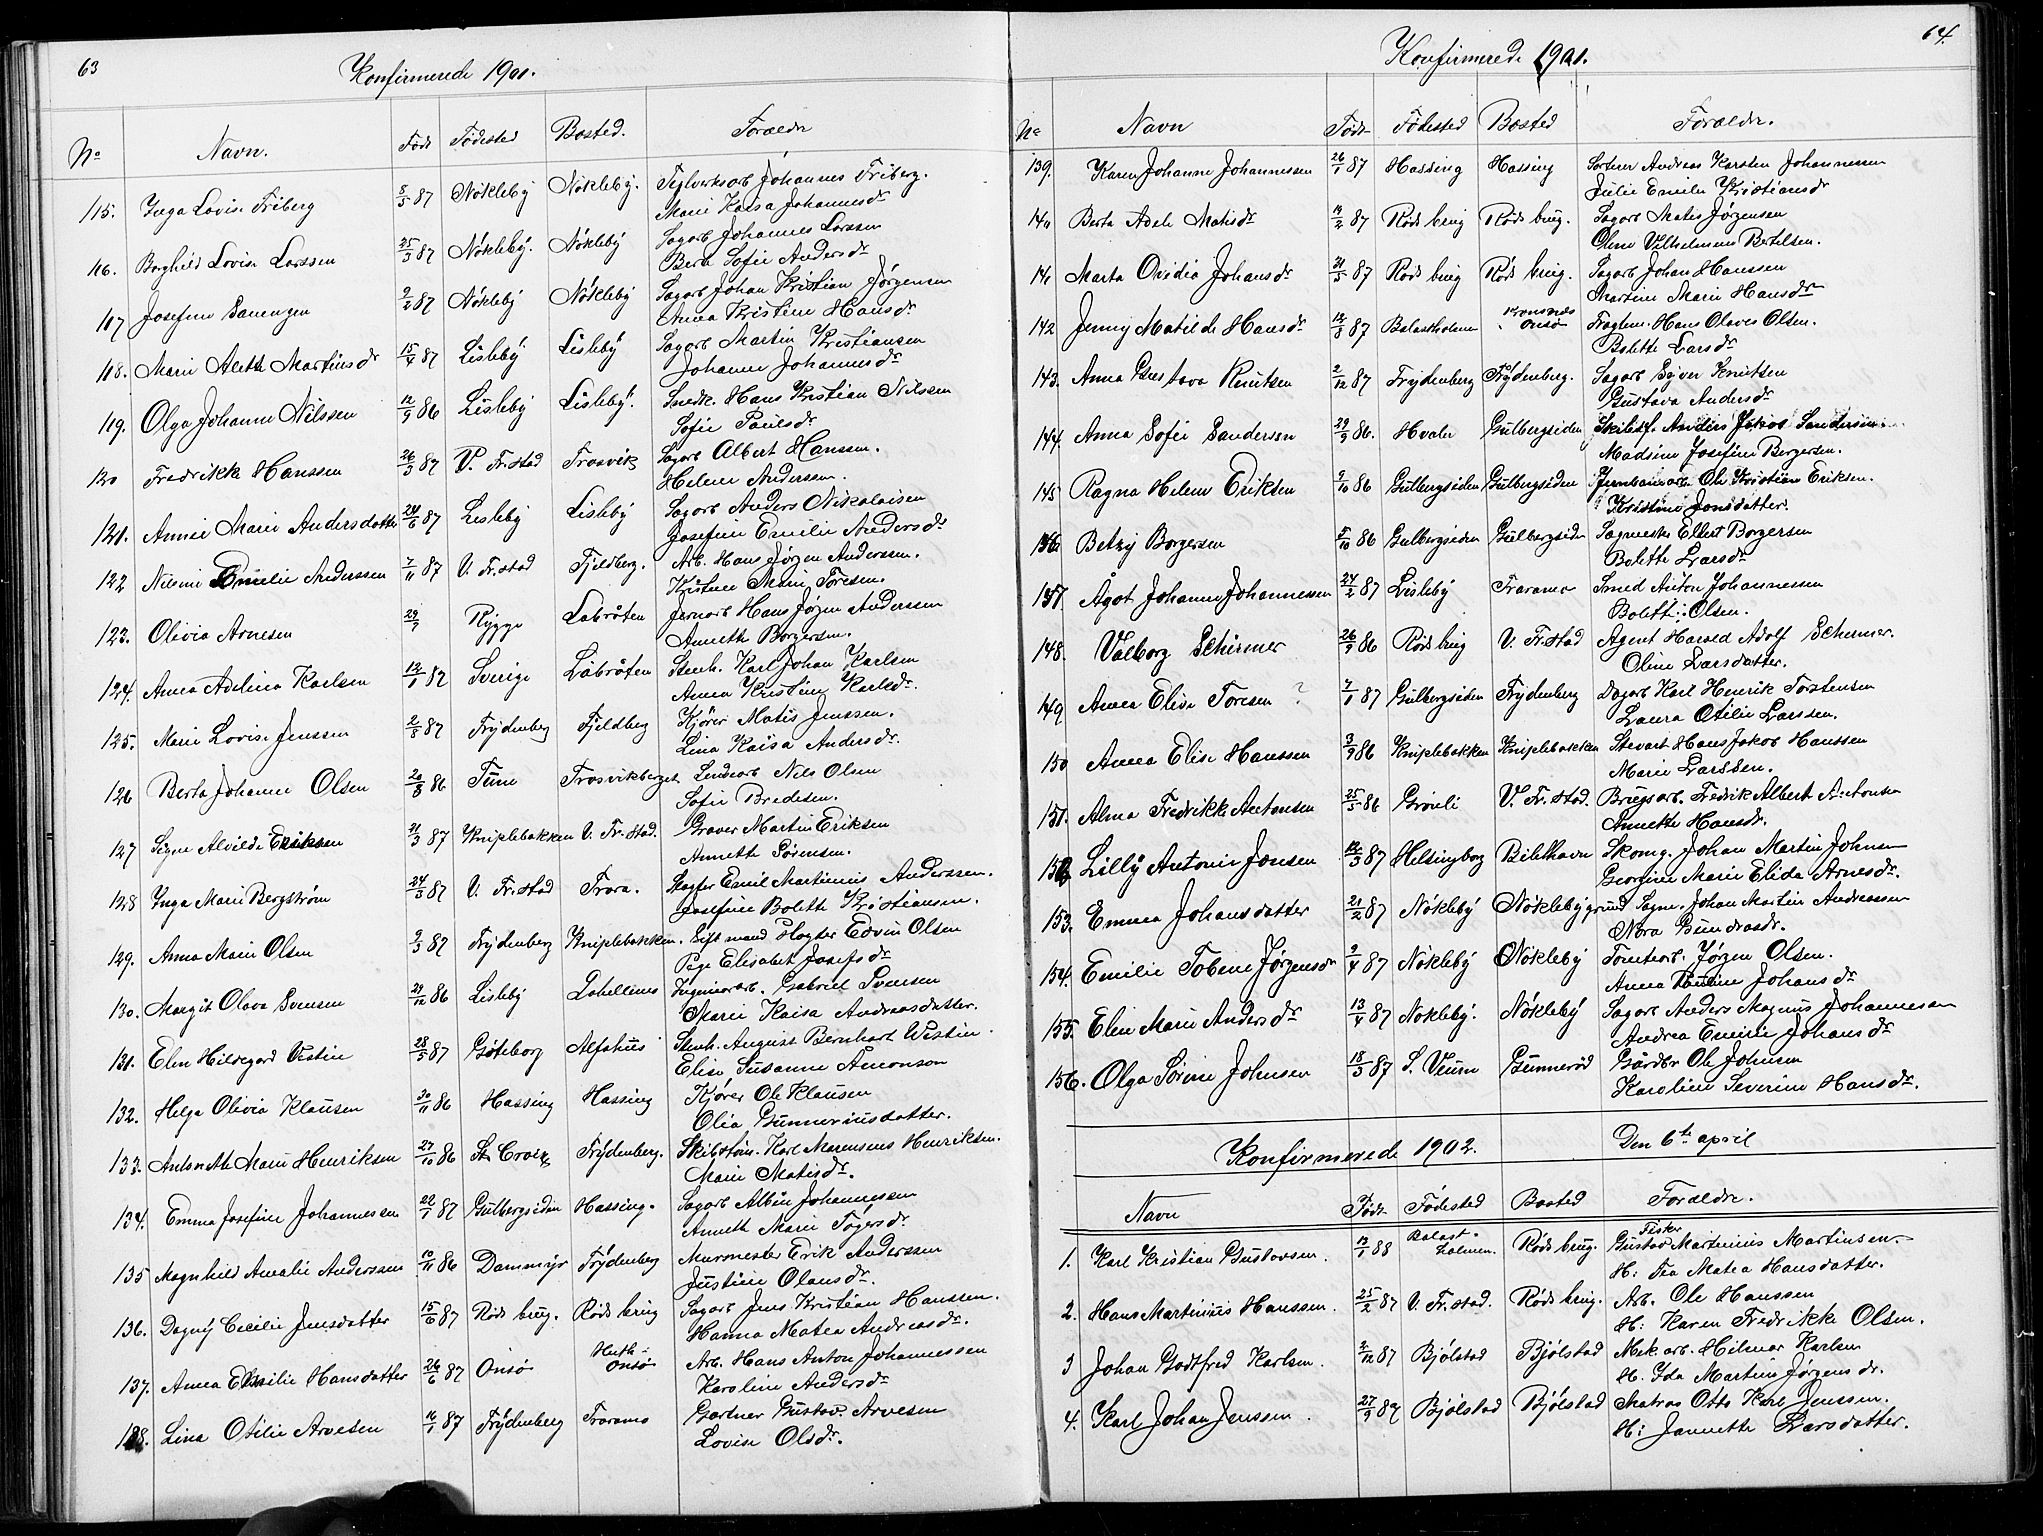 63
Konfirmerede 1901.
No Navn. Født Fødested Bosted. Forældre
115. Inga Lovise Friberg 8/5 87 Nökleby Nökleby. Teglverksarb Johannes Friberg.
Marie Kaisa Johannesdr
116. Borghild Lovise Larssen 25/3 87 Nökleby. Nökleby Sagarb Johannes Larssen
Berte Sofie Andersdr
117 Josefine Sanengen 9/2 87 Nökleby Nökleby Sagarb Johan Kristian Jørgensen
Anna Kristine Hansdr
118. Marie Alette Martinsdr 15/4 87 Lisleby Lisleby Sagarb Martin Kristiansen
Johanne Johannesdr
119. Olga Johanne Nilssen 12/9 86 Lisleby Lisleby. Snedk. Hans Kristian Nilssen
Sofie Paulsdr
120 Fredrikke Hanssen 26/3 87 V. Fr.stad Trosvik Sagarb Albert Hanssen.
Helene Anderssen.
121. Annie Marie Andersdatter 24/6 87 Lisleby Lisleby Sagarb Anders Nikolaisen
Josefine Emilie Andersdr
122 Nilsine Emilie Anderssen 7/11 87 V. Fr.stad Fjeldberg. Arb. Hans Jørgen Anderssen.
Kristine Marie Toresen.
123. Olivia Arnesen 29/7 Rygge Labråten Jernarb Hans Jørgen Anderssen
Annette Borgersen.
124. Anna Adelina Karlsen 12/1 87 Sverige Labråten Stenh. Karl Johan Karlsen
Anna Kristine Karlsdr.
125. Marie Lovise Jenssen 2/8 87 Frydenberg Fjeldberg Kjörer Matis Jenssen.
Lina Kaisa Andersdr.
126 Berta Johanne Olsen 20/8 86 Tune Trosvikberget Lendsarb Nils Olsen
Sofie Bredesen.
127 Signe Alvilde Eriksen 21/3 87 Kniplebakken V. Fr.stad. Graver Martin Eriksen
Annette Sørensen.
128 Inga Marie Bergstrøm 24/3 87 V. Fr.stad Trara. Slagter Emil Martinius Anderssen.
Josefine Bolette Kristiansen.
129. Anna Marie Olsen 9/3 87 Frydenberg Kniplebakken. Gift mand Slagter Edvin Olsen
Pige Elisabet Josefsdr
130. Margit Olava Svensen 29/12 86 Lisleby Labellines Ingeniørarb. Gabriel Svensen
Marie Kaisa Andreasdatter.
131. Elen Hildegard Vestin 28/5 87 Göteborg Alfshus Stenh. August Bernhart Westin.
Elise Susanne Amonson
132. Helga Olivia Klausen 30/11 86 Hassing Hassing Kjörer Ole Klausen
Olia Gunneriusdatter.
133. Antonette Marie Henriksen 27/10 86 St. Croix Frydenberg. Skibstøm. Karl Marensius Henriksen.
Marie Matisdr.
134. Emma Josefine Johannessen 22/1 87 Gulbergsiden Hassing. Sagarb Albin Johannessen
Annette Marie Tøgersdr.
135 Magnhild Amalie Anderssen 10/11 86 Dammyr Frydenberg Murmester Erik Anderssen
Justine Olausdr.
136. Dagny Cecilie Jensdatter 15/6 87 Röds brug. Röds brug Sagarb Jens Kristian Hanssen.
Hanna Matea Andreasdr.
137. Anna Emilie Hansdatter 26/6 87 Onsö Huth- Onsö Arb. Hans Anton Johannessen
Karoline Andersdr
138. Lina Otilie Arvesen 16/1 87 Frydenberg Traramo Gartner Gustav Arvesen
Lovise Olsdr.
64.
Konfirmerede 1901.
No Navn Födt Födested Bosted Forældre.
139. Karen Johanne Johannessen 26/1 87 Hassing Hassing Sorterer Andreas Karsten Johannessen
Julie Emilie Kristiansdr
140 Berta Adele Matisdr 14/2 87 Röds brug Röds brug. Sagarb Matis Jørgensen
Oline Vilhelmine Bertelsen.
141 Marta Ovidia Johansdr 21/5 87 Röds brug Röds brug. Sagarb Johan Hanssen
Martine Marie Hansdr
142 Jenny Matilde Hansdr 12/8 87 Balastholmen Kronsnæs Onsö Fragtem. Hans Olaves Olsen.
Bolette Larsdr
143. Anna Gustava Knutsen 2/12 87 Frydenberg Frydenberg. Sagarb Sejver Knutsen
Gustava Andersdr
144. Anna Sofie Sanderssen 29/9 86. Hvaler Gulbergsiden Skibsf. Anders Jakob Sanderssen
Madsine Josefine Bergersen.
145 Ragna Helene Eriksen 9/10 86 Gulbergsiden Gulbergsiden Jernbanearb Ole Kristian Eriksen.
Kristine Jonsdatter.
146 Betzy Borgersen 5/10 86 Gulbergsiden Gulbergsiden Sagmester Elbert Borgersen
Bolette Larsdr
147 Ågot Johanne Johannessen 24/2 87 Lisleby Traramo Smed Anton Johannessen
Bolette Olsen.
148. Valborg Schirmer 26/9 86 Röds brug V. Fr.stad Agent Harald Adolf Schirmer.
Oline Larsdatter.
149 Anna Elise Toresen ? 7/1 87 Gulbergsiden Frydenberg Dagarb Karl Henrik Torstensen
Laura Otilie Larssen.
150 Anna Elise Hanssen 3/9 86 Kniplebakken Kniplebakken Stevart Hans Jakob Hanssen
Marie Larssen.
151. Alma Fredrikke Antonsen 25/5 86 Gröneli V. Fr.stad. Brugsarb. Fredrik Albert Antonsen
Annette Hansdr.
152 Lilly Antonie Jonsen 12/3 87 Helsingborg Bilethavn Skomg. Johan Martin Johnsen
Georgine Marie Elida Arnesdr.
153. Emma Johansdatter 21/2 87 Nökleby Nöklebygrund Sagm. Johan Martin Andreassen
Nora Gundrosdr.
154. Emilie Tobine Jørgensdr 9/4 87 Nökleby Nökleby Tomtearb. Jørgen Olsen.
Anna Pauline Johansdr
155. Elin Marie Andersdr 13/4 87 Nökleby. Nökleby Sagarb Anders Magnus Johannessen
Andrea Emilie Johansdr
156. Olga Sörine Johnsen 18/3 87 S. Veum Gunneröd Gårdbr Ole Johnsen
Karoline Severine Hansdr.
Konfirmerede 1902. Den 6te april
Navn Födt Födested Bosted Forældre.
1. Karl Kristian Gustavsen. 12/1 88 Balast-holmen. Röds brug. Fisker Gustav Martinius Martinsen.
H: Tea Matea Hansdatter.
2. Hans Martinius Hanssen. 25/2 87 V. Fr.stad. Röds brug. Arb. Ole Hanssen
H: Karen Fredrikke Olsen.
3 Johan Godtfred Karlsen. 2/12 87 Bjölstad Bjölstad Mek arb. Hilmar Karlsen
H. Ida Martine Jørgensdr.
4. Karl Johan Jenssen. 27/9 87 Bjölstad Bjölstad Matros Otto Karl Jenssen.
H: Jannette Larsdatter.